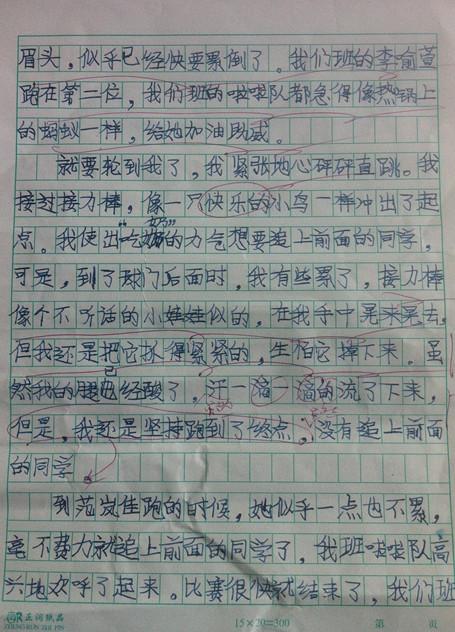 眉头，似乎已经快要累倒了。我们班的李渝萱
跑在第二位，我们班的啦啦队都急得像热锅上
的蚂蚁一样，给她加油助威。
就要轮到我了，我紧张地心砰砰直跳。我
接过接力棒，像一只快乐的小鸟一样冲出了起
点。我使出“吃奶”的力气想要追上前面的同学，
可是，到了球门后面时，我有些累了，接力棒
像个不听话的小娃娃似的，在我手中晃来晃去，
但我还是把它抓得紧紧的，生怕它掉下来。虽
然我的腿已经酸了，汗一滴一滴的流了下来，
但是，我还是坚持跑到了终点，没有追上前面
的同学
到范岚佳跑的时候，她似乎一点也不累，
毫不费力就追上前面的同学了，我班啦啦队高
兴地欢呼了起来。比赛很快就结束了，我们班
正润纸品
ZHENG RUN ZHI PIN
15×20=300
第 页